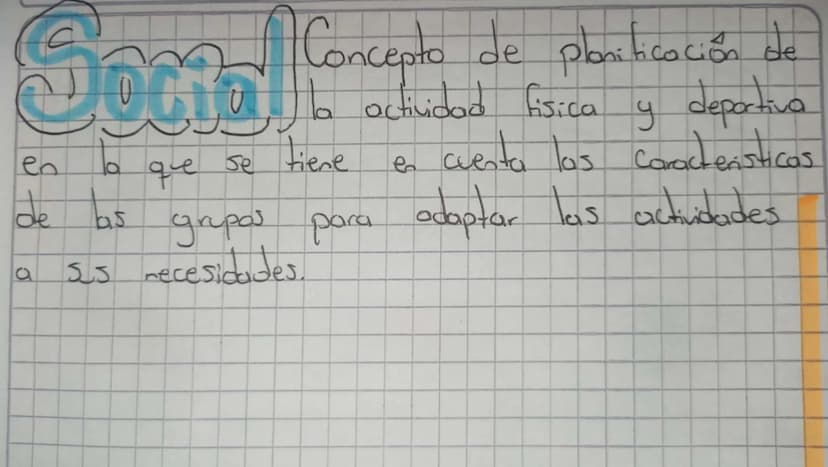 Social Concepto de planificación de
la actividad física y deportiva
en la que se tiene en cuenta las características
de los grupos para adaptar las actividades
a sus necesidades.